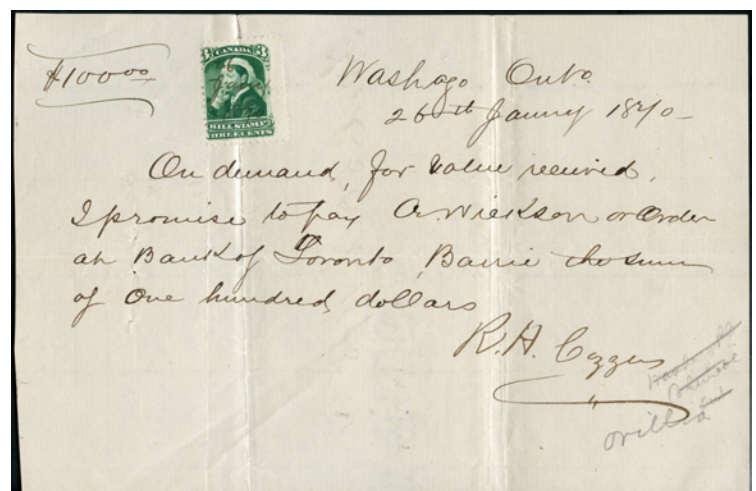 $100 00
3 CANADA 3
BILL STAMP
THREE CENTS
Washago Onto.
26th Januy 1870
On demand, for value received,
I promise to pay A. Wickson or order
at Bank of Toronto, Barrie the sum
of One hundred dollars
R. H. Cozzens
Orillia